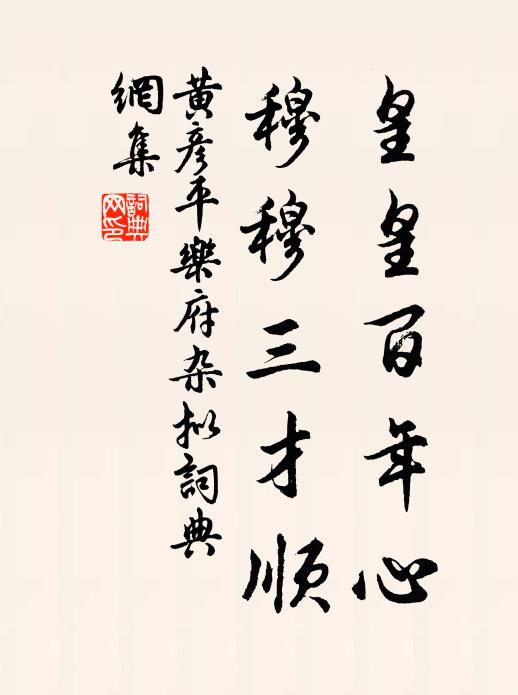 皇皇百年心
穆穆三才順
黄彦平樂府杂拟詞典
網集
詞典
网印